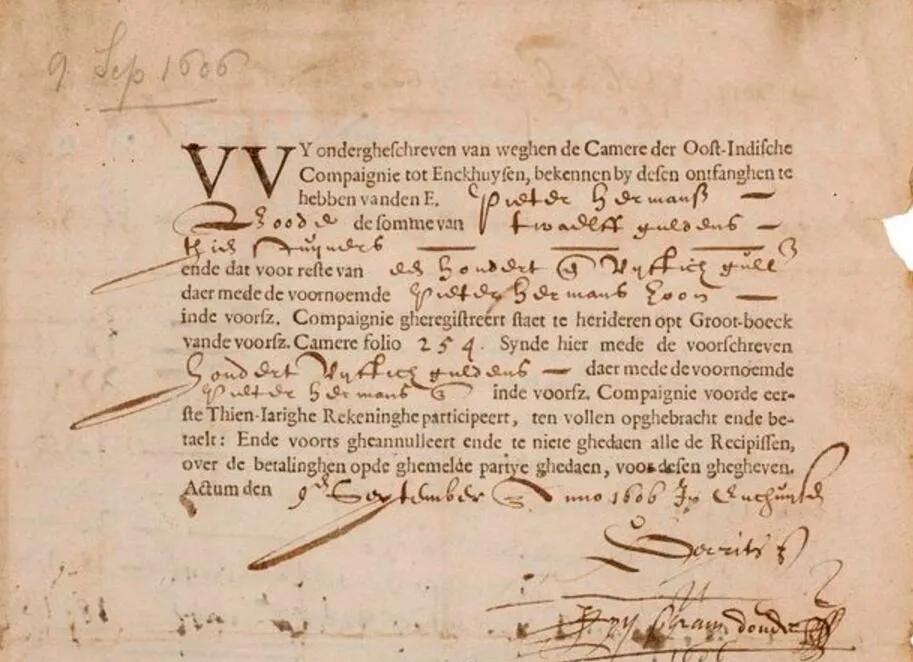 9 Sep 1606
VVY ondergheſchreven van weghen de Camere der Ooſt-Indiſche
Compaignie tot Enckhuyſen, bekennen by deſen ontfanghen te
hebben vanden E. Pieter Hermansz
de ſomme van twaelff guldens
thien stuyvers
ende dat voor reſte van een hondert vyftich
daer mede de voornoemde Pieter Hermans
inde voorſz. Compaignie gheregiſtreert ſtaet te herideren opt Groot-boeck
vande voorſz. Camere folio 254. Synde hier mede de voorſchreven
hondert vyftich guldens daer mede de voornoemde
Pieter Hermans inde voorſz. Compaignie voorde eer-
ſte Thien-Iarighe Rekeninghe participeert, ten vollen opghebracht ende be-
taelt: Ende voorts gheannulleert ende te niete ghedaen alle de Recipiſſen,
over de betalinghen opde ghemelde partye ghedaen, voor deſen ghegheven.
Actum den 9 September Anno 1606 In
1606